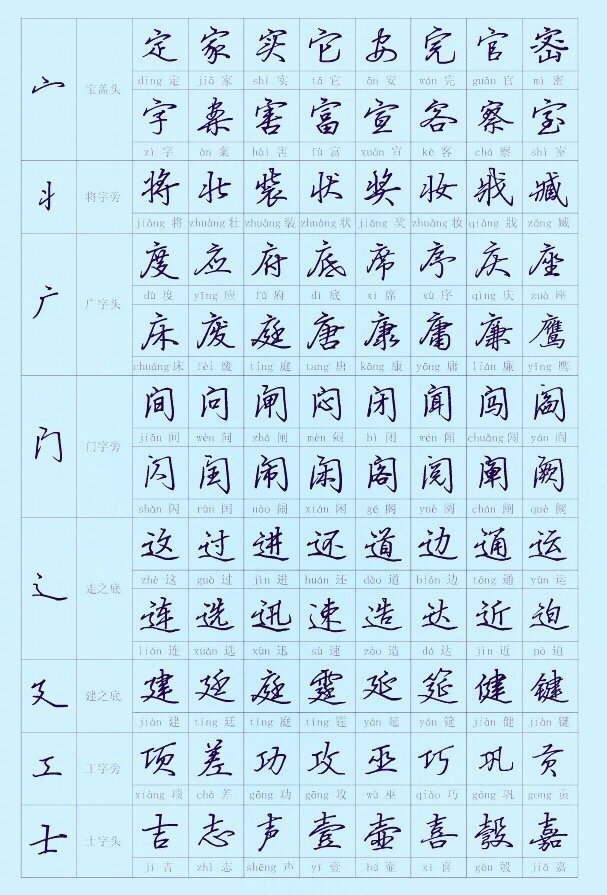 宀 宝盖头 定 家 实 它 安 完 官 密
dìng 定 jiā 家 shí 实 tā 它 ān 安 wán 完 guān 官 mì 密
字 案 害 富 宣 客 察 室
zì 字 àn 案 hài 害 fù 富 xuān 宣 kè 客 chá 察 shì 室
丬 将字旁 将 壮 装 状 奖 妆 戕 臧
jiāng 将 zhuàng 壮 zhuāng 装 zhuàng 状 jiǎng 奖 zhuāng 妆 qiāng 戕 zāng 臧
广 广字头 度 应 府 底 席 序 庆 座
dù 度 yīng 应 fǔ 府 dǐ 底 xí 席 xù 序 qìng 庆 zuò 座
床 废 庭 唐 康 庸 廉 鹰
chuáng 床 fèi 废 tíng 庭 tang 唐 kāng 康 yōng 庸 lián 廉 yīng 鹰
门 门字旁 间 问 闸 闷 闭 闻 闯 阎
jiān 间 wèn 问 zhá 闸 mèn 闷 bì 闭 wén 闻 chuǎng 闯 yán 阎
闪 闰 闹 闲 阁 阅 阐 阙
shǎn 闪 rùn 闰 nào 闹 xián 闲 gé 阁 yuè 阅 chǎn 阐 què 阙
辶 走之底 这 过 进 还 道 边 通 运
zhè 这 guò 过 jìn 进 huán 还 dào 道 biān 边 tōng 通 yùn 运
连 选 迅 速 造 达 近 迫
lián 连 xuǎn 选 xùn 迅 sù 速 zào 造 dá 达 jìn 近 pò 迫
廴 建之底 建 廷 庭 霆 延 筵 健 键
jiàn 建 tíng 廷 tíng 庭 tíng 霆 yán 延 yán 筵 jiàn 健 jiàn 键
工 工字旁 项 差 功 攻 巫 巧 巩 贡
xiàng 项 chà 差 gōng 功 gōng 攻 wū 巫 qiǎo 巧 gǒng 巩 gong 贡
士 士字头 吉 志 声 壹 壶 喜 彀 嘉
jí 吉 zhì 志 shēng 声 yī 壹 hú 壶 xǐ 喜 gòu 彀 jiā 嘉